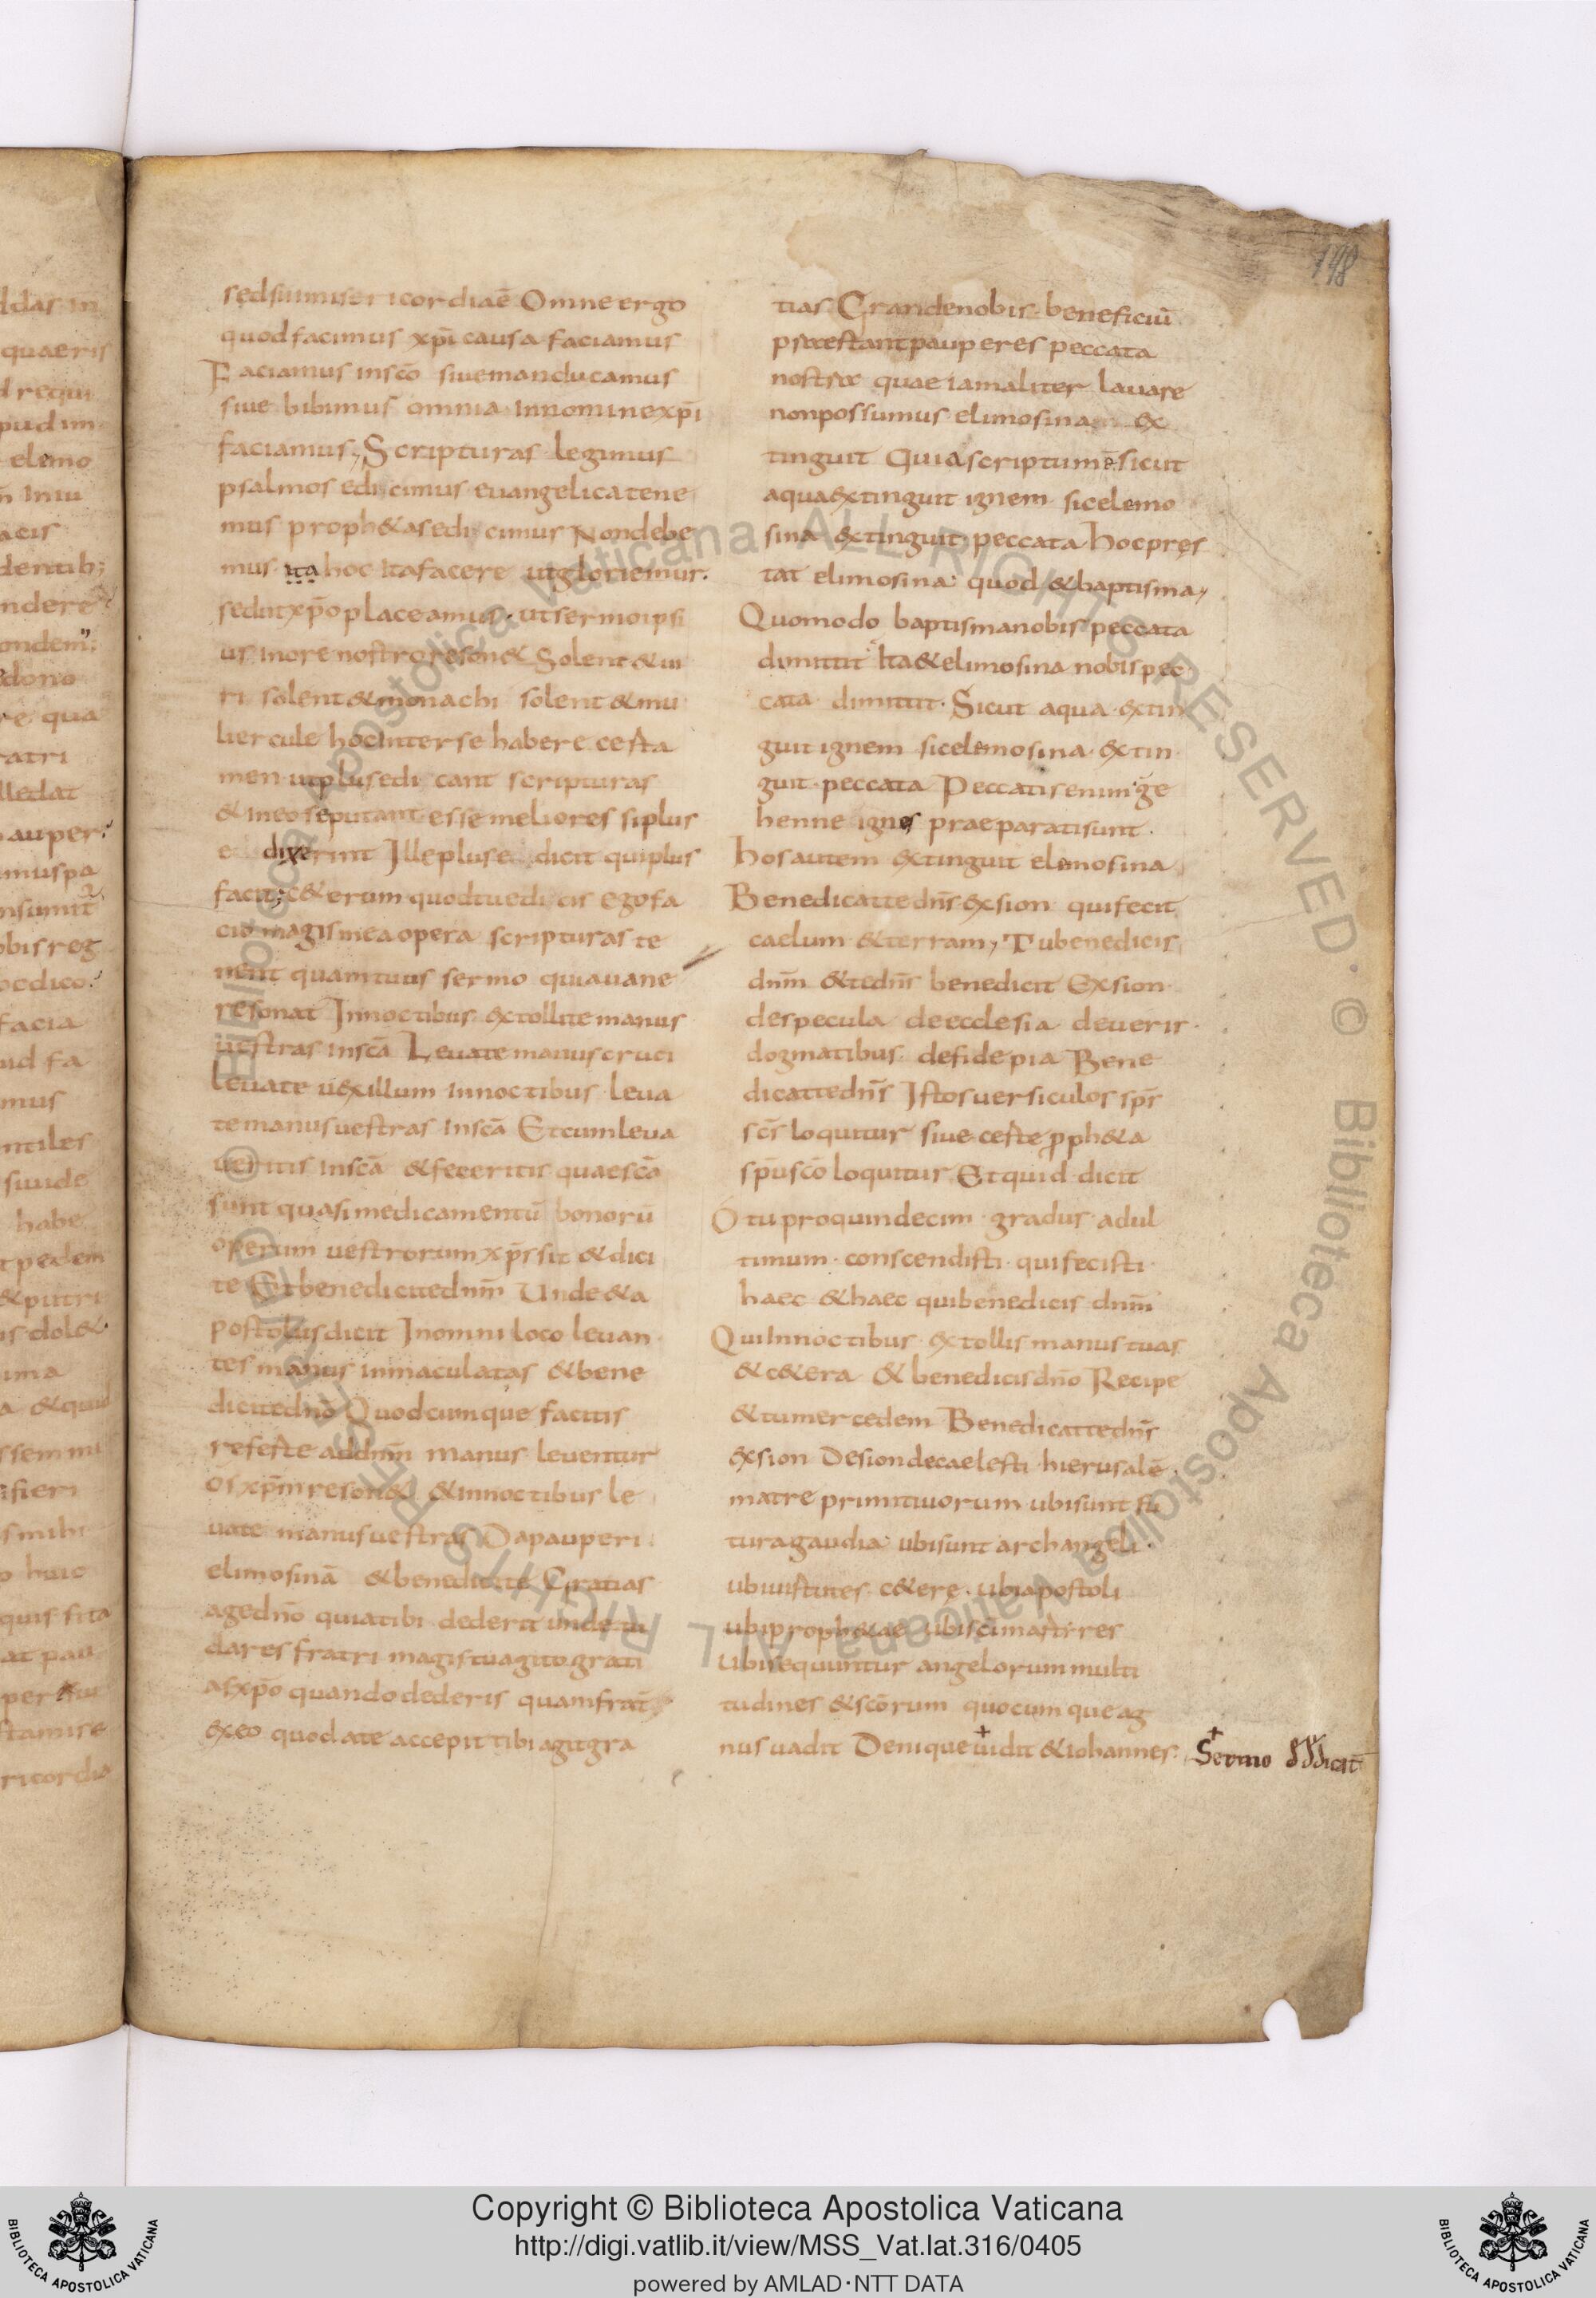 198
sed si inmisericordia ē Omne ergo
quod facimus xp̄i causa faciamus
Faciamus insc̄o siue manducamus
siue bibimus omnia innomine xp̄i
faciamus, Scripturas legimus
psalmos edi cimus euangelica tene
mus proph&as edi cimus Non debe
mus ita hoc Ita facere ut gloriemur.
sed ut xp̄o placeamus. ut sermo ipsi
us inore nostro reson& Solent & ui
ri solent & monachi solent & mu
liercule hoc inter se habere certa
men ut plus edi cant scripturas
& ineo se putant esse meliores si plus
e dixerint Ille plus e dicit qui plus
facit; c&erum quod tu edi cis ego fa
cio magis mea opera scripturas te
nent quam tuus sermo quia uane
resonat In noctibus extollite manus
uestras insc̄a Leuate manus cruci
leuate uexillum innoctibus leua
te manus uestras insc̄a Et cum leua
ueritis insc̄a & feceritis quae sc̄a
sunt quasi medicamentū bonorū
operum uestrorum xp̄s sit & dici
te Et benedicite dn̄m Unde & a
postolus dicit In omni loco leuan
tes manus inmaculatas & bene
dicite dn̄o Quodcumque facitis
referte ad dn̄m manus leuentur
os xp̄m reson& & innoctibus le
uate manus uestras Da pauperi
elimosinā & benedicite Gratias
age dn̄o quia tibi dederit unde tu
dares fratri magis tu agito grati
as xp̄o quando dederis quam frat̄
ex eo quod a te accepit tibi agit gra
tias Grande nobis beneficiū
praestant pauperes peccata
nostra quae iam aliter lauare
non possumus elimosina ex
tinguit Quia scriptum ē sicut
aqua extinguit ignem sic elemo
sina extinguit peccata Hoc pręs
tat elimosina quod & baptisma,
Quomodo baptisma nobis peccata
dimittit Ita & elimosina nobis pec
cata dimittit. Sicut aqua extin
guit ignem sic elemosina extin
guit peccata Peccatis enim ge
henne ignes praeparati sunt.
hos autem extinguit elemosina
Benedicat te dn̄s exsion qui fecit
caelum & terram, Tu benedicis
dn̄m & te dn̄s benedicit Ex sion
de specula de ecclesia de ueris.
dogmatibus de fide pia Bene
dicat te dn̄s Istos uersiculos sp̄s
sc̄s loquitur siue certe proph&a
sp̄u sc̄o loquitur Et quid dicit
O tu pro quindecim gradus ad ul
timum conscendisti qui fecisti
haec & haec qui benedicis dn̄m
Qui innoctibus extollis manus tuas
& c&era & benedicis dn̄o Recipe
& tu mercedem Benedicat te dn̄s
ex sion De sion de caelesti hierusalē
matre primitiuorum ubi sunt fu
tura gaudia ubi sunt archangeli.
ubi uirtutes c&erę. ubi apostoli
ubi proph&ae ubi sc̄i martires
Ubi sequuntur angelorum multi
tudines & sc̄orum quocumque ag
nus uadit Denique uidit & iohannes.
Sermo
Biblioteca Apostolica Vaticana ALL RIGHTS RESERVED. © Biblioteca Apostolica Vaticana ALL RIGHTS RESERVED. ©
BIBLIOTECA APOSTOLICA VATICANA
Copyright © Biblioteca Apostolica Vaticana
http://digi.vatlib.it/view/MSS_Vat.lat.316/0405
powered by AMLAD·NTT DATA
BIBLIOTECA APOSTOLICA VATICANA